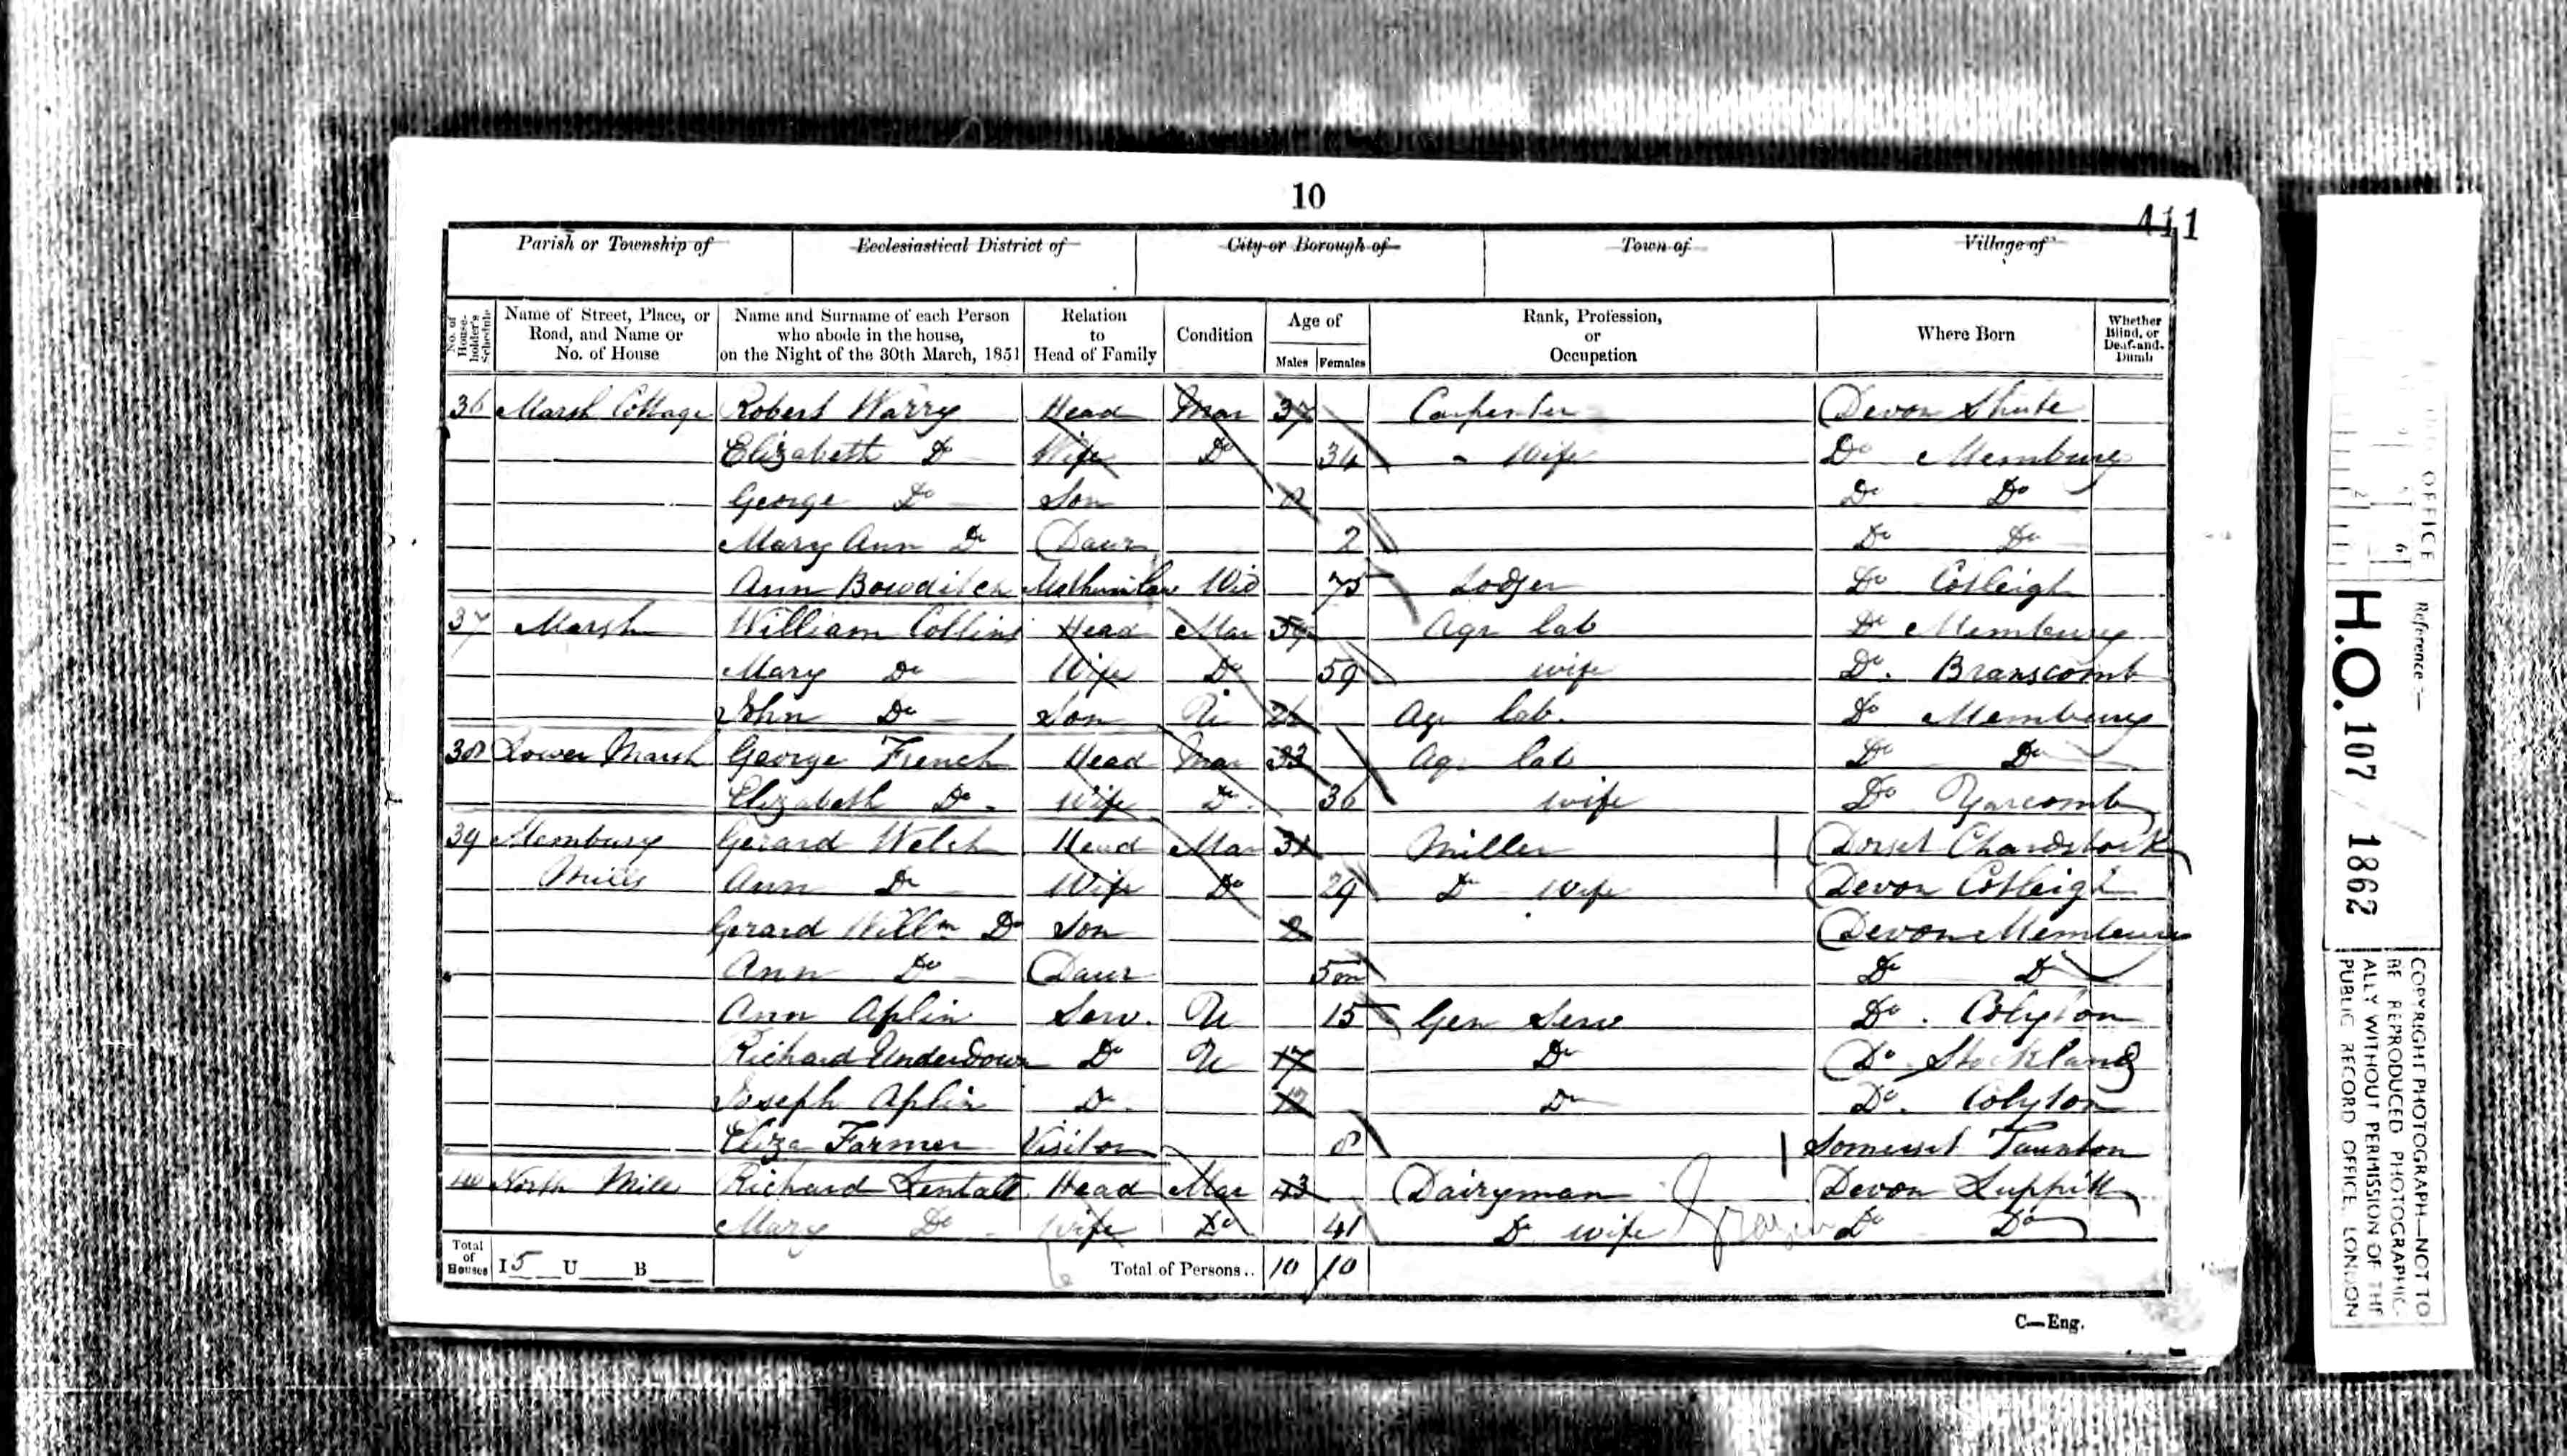 10
411
Parish or Township of Ecclesiastical District of City or Borough of Town of Village of
No. of House-holder's Schedule Name of Street, Place, or Road, and Name or No. of House Name and Surname of each Person who abode in the house, on the Night of the 30th March, 1851 Relation to Head of Family Condition Age of Males Females Rank, Profession, or Occupation Where Born Whether Blind, or Deaf-and-Dumb
36 Marsh Cottage Robert Warry Head Mar 37 Carpenter Devon Shute
Elizabeth Do Wife Do 34 - Wife Do Membury
George Do Son 8 Do Do
Mary Ann Do Daur 2 Do Do
Ann Bowditch Motherinlaw Wid 75 Lodger Do Cotleigh
37 Marsh William Collins Head Mar 59 Agr lab Do Membury
Mary Do Wife Do 59 wife Do. Branscomb
John Do Son U Agr lab. Do Membury
38 Lower Marsh George French Head Mar 33 Agr lab Do Do
Elizabeth Do - Wife Do. 36 wife Do Yarcomb
39 Membury Gerard Welch Head Mar 31 Miller Dorset Chardstock
Mills Ann Do Wife Do 29 Do wife Devon Cotleigh
Gerard Willm Do Son 2 Devon Membury
Ann Do Daur 5m Do Do
Ann Aplin Serv. U 15 Gen Serv Do. Colyton
Richard Underdown Do U 17 Do Do Stockland
Joseph Aplin Do. 12 Do Do. Colyton
Eliza Farmer Visitor 8 Somerset Taunton
40 North Mill Richard Head Mar 43 Dairyman Devon Luppitt
Mary Do - Wife Do 41 Do wife Do Do
Total of Houses I 5 U B Total of Persons.. 10 10
C—Eng.
OFFICE
Reference :—
H.O. 107 / 1862
COPYRIGHT PHOTOGRAPH—NOT TO
BE REPRODUCED PHOTOGRAPHIC-
ALLY WITHOUT PERMISSION OF THE
PUBLIC RECORD OFFICE, LONDON